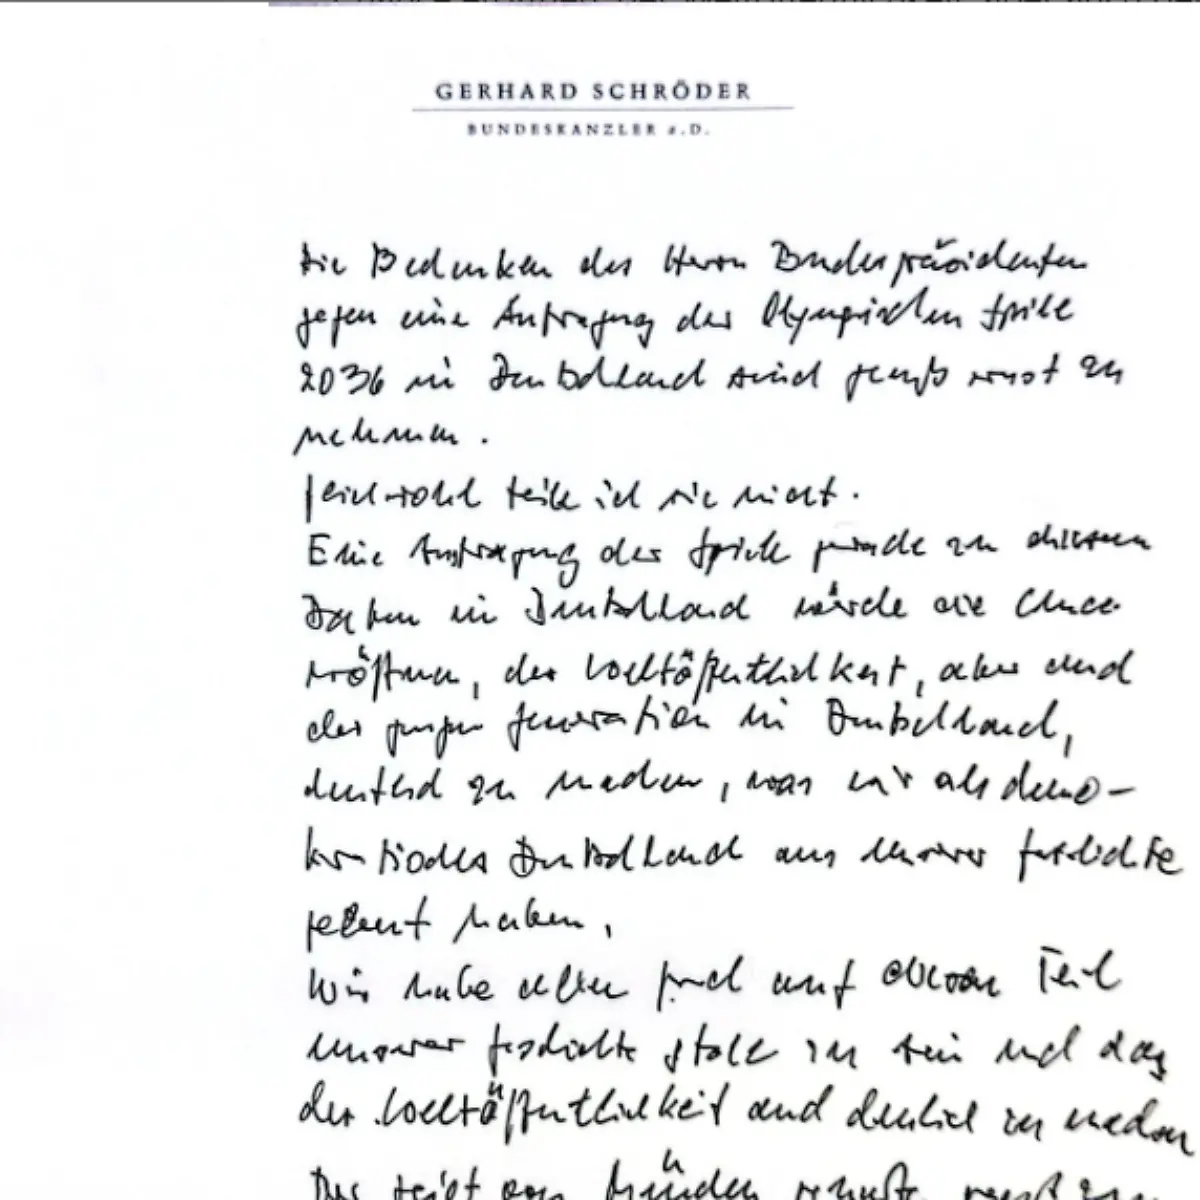 GERHARD SCHRÖDER
BUNDESKANZLER a.D.
Die Bedenken des Herrn Bundespräsidenten
gegen eine Austragung der Olympischen Spiele
2036 in Deutschland sind gewiß ernst zu
nehmen.
Gleichwohl teile ich sie nicht.
Eine Austragung der Spiele gerade zu diesem
Datum in Deutschland würde die Chance
eröffnen, der Weltöffentlichkeit, aber auch
der jungen Generation in Deutschland,
deutlich zu machen, was wir als demo-
kratisches Deutschland aus unserer Geschichte
gelernt haben.
Wir haben allen Grund auf diesen Teil
unserer Geschichte stolz zu sein und das
der Weltöffentlichkeit auch deutlich zu machen